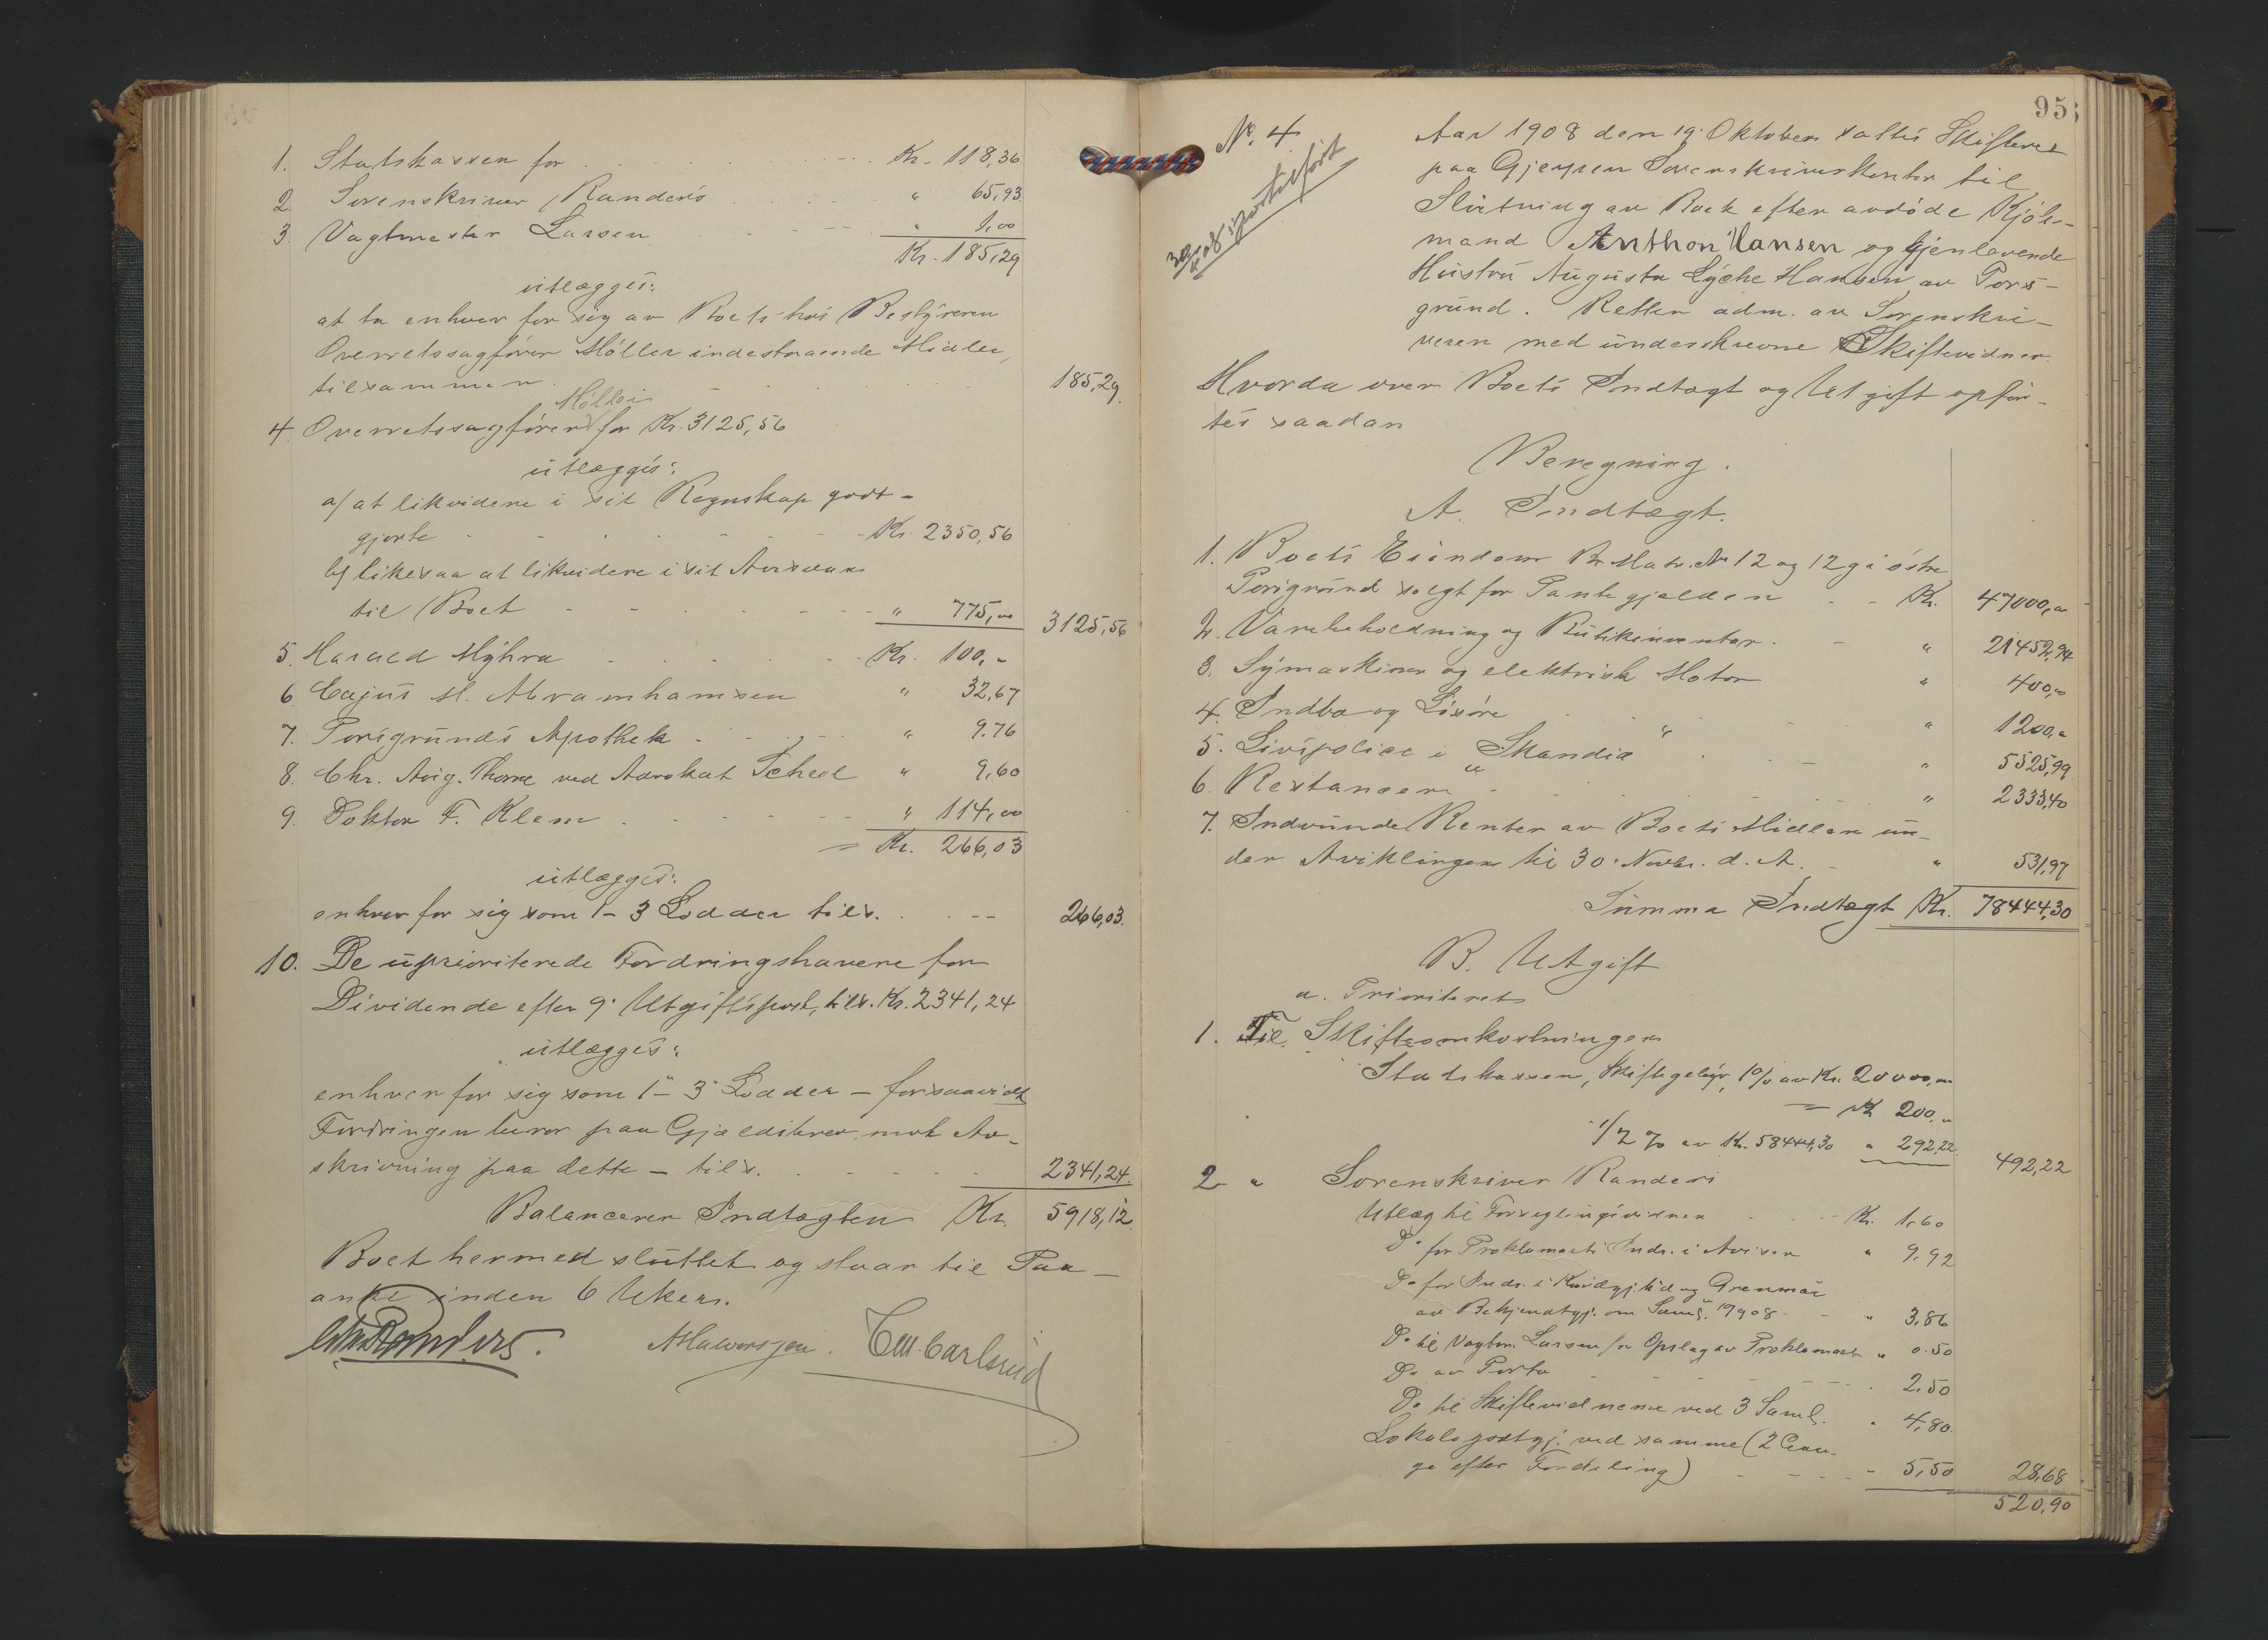 1. Statskassen for Kr. 118,36
2. Sorenskriver Randers " 65,93
3. Vagtmester Larsen " 1,00
Kr. 185,29
utlægges:
at ta enhver for sig av Boets hos Bestyreren
Overretssagfører Møller indestaaende Midler,
tilsammen 185,29.
Møller
4. Overretssagfører for Kr. 3125,56
utlægges:
a/ at likvidere i sit Regnskap godt-
gjorte Kr. 2350,56
b/ likesaa at likvidere i sit Ansvar
til Boet " 775,00 3125,56
5. Harald Myhra Kr. 100,-
6. Cajus M. Abramhamsen " 32,67
7. Porsgrunds Apothek " 9.76
8. Chr. Aug. Thorne ved Advokat Scheel " 9,60
9. Doktor F. Klem " 114,00
= Kr. 266,03
utlægges:
enhver for sig som 1-3 Lodder tils. 266,03.
10. De uprioriterede Fordringshavere for
Dividende efter 9. Utgiftspost, tils. Kr. 2341,24
utlægges:
enhver for sig som 1"- 3" Lodder - forsaavidt
Fordringen beror paa Gjældsbrev mot Av-
skrivning paa dette - tils. 2341,24.
Balancerer Indtægten Kr. 5918,12.
Boet hermed sluttet og staar til Paa-
anke inden 6 Uker.
Randers. AHalvorsen. Carlsrud
95
No. 4
tilført
Aar 1908 den 19. Oktober sattes Skifteret
paa Gjerpen Sorenskriverkontor til
Slutning av Boet efter avdøde Kjøb-
mand Anthon Hansen og gjenlevende
Hustru Augusta Lyche Hansen av Pors-
grund. Retten adm. av Sorenskri-
veren med underskrevne Skiftevidner.
Hvorda over Boets Indtægt og Utgift opfør-
tes saadan
Beregning.
A. Indtægt.
1. Boets Eiendom Br. Matr. No 12 og 12 g i østre
Porsgrund solgt for Pantegjelden Kr. 47000,00
2. Varebeholdning og Butikinventar " 21452,94
3. Symaskiner og elektrisk Motor " 400,00
4. Indbo og Løsøre " 1200,00
5. Livspolice i "Skandia" " 5525,99
6. Restancer " 2333,40
7. Indvundne Renter av Boets Midler un-
der Aviklingen til 30. Novbr. d. A. " 531,97
Summa Indtægt Kr. 78444,30
B. Utgift
a. Prioritert
1. Til Skifteomkostninger
Statskassen, Skiftegebyr, 1 % av Kr. 20000,00
= Kr. 200,00
1/2 % av Kr. 58444,30 " 292,22. 492,22
2 " Sorenskriver Randers
Utlæg til Forseglingsvidner Kr. 1,60
Do for Proklamaets Indr. i Aviser " 9.92
Do for Indr. i Kundgj.tid og Grenmar
av Bekjendtgj. om Saml. 1908 " 3,86
Do til Vagtm. Larsen for Opslag av Proklamaet " 0.50
Do av Porto 2,50
Do til Skiftevidnerne ved 3 Saml. " 4,80
Lokalegodtgj. ved samme (2 Gan-
ge efter Fordeling) 5,50 28,68
520,90